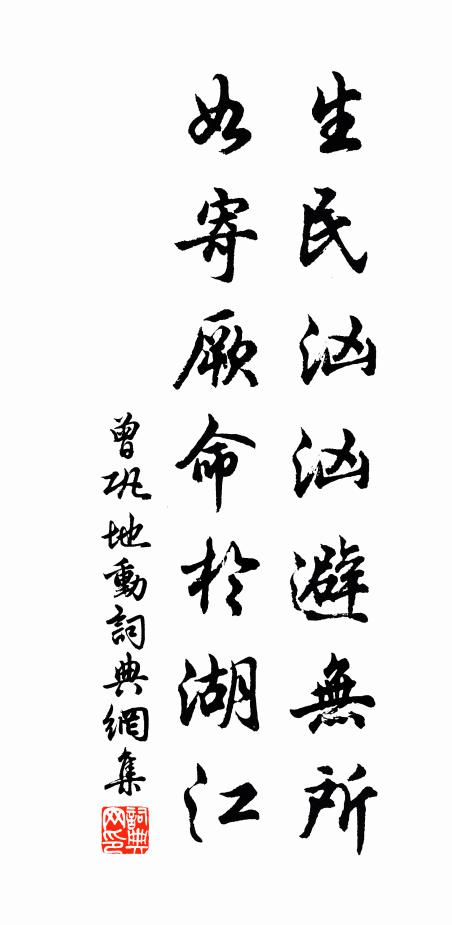 生民汹汹避無所
如寄厥命於湖江
曾巩地動詞典網集
詞典网印